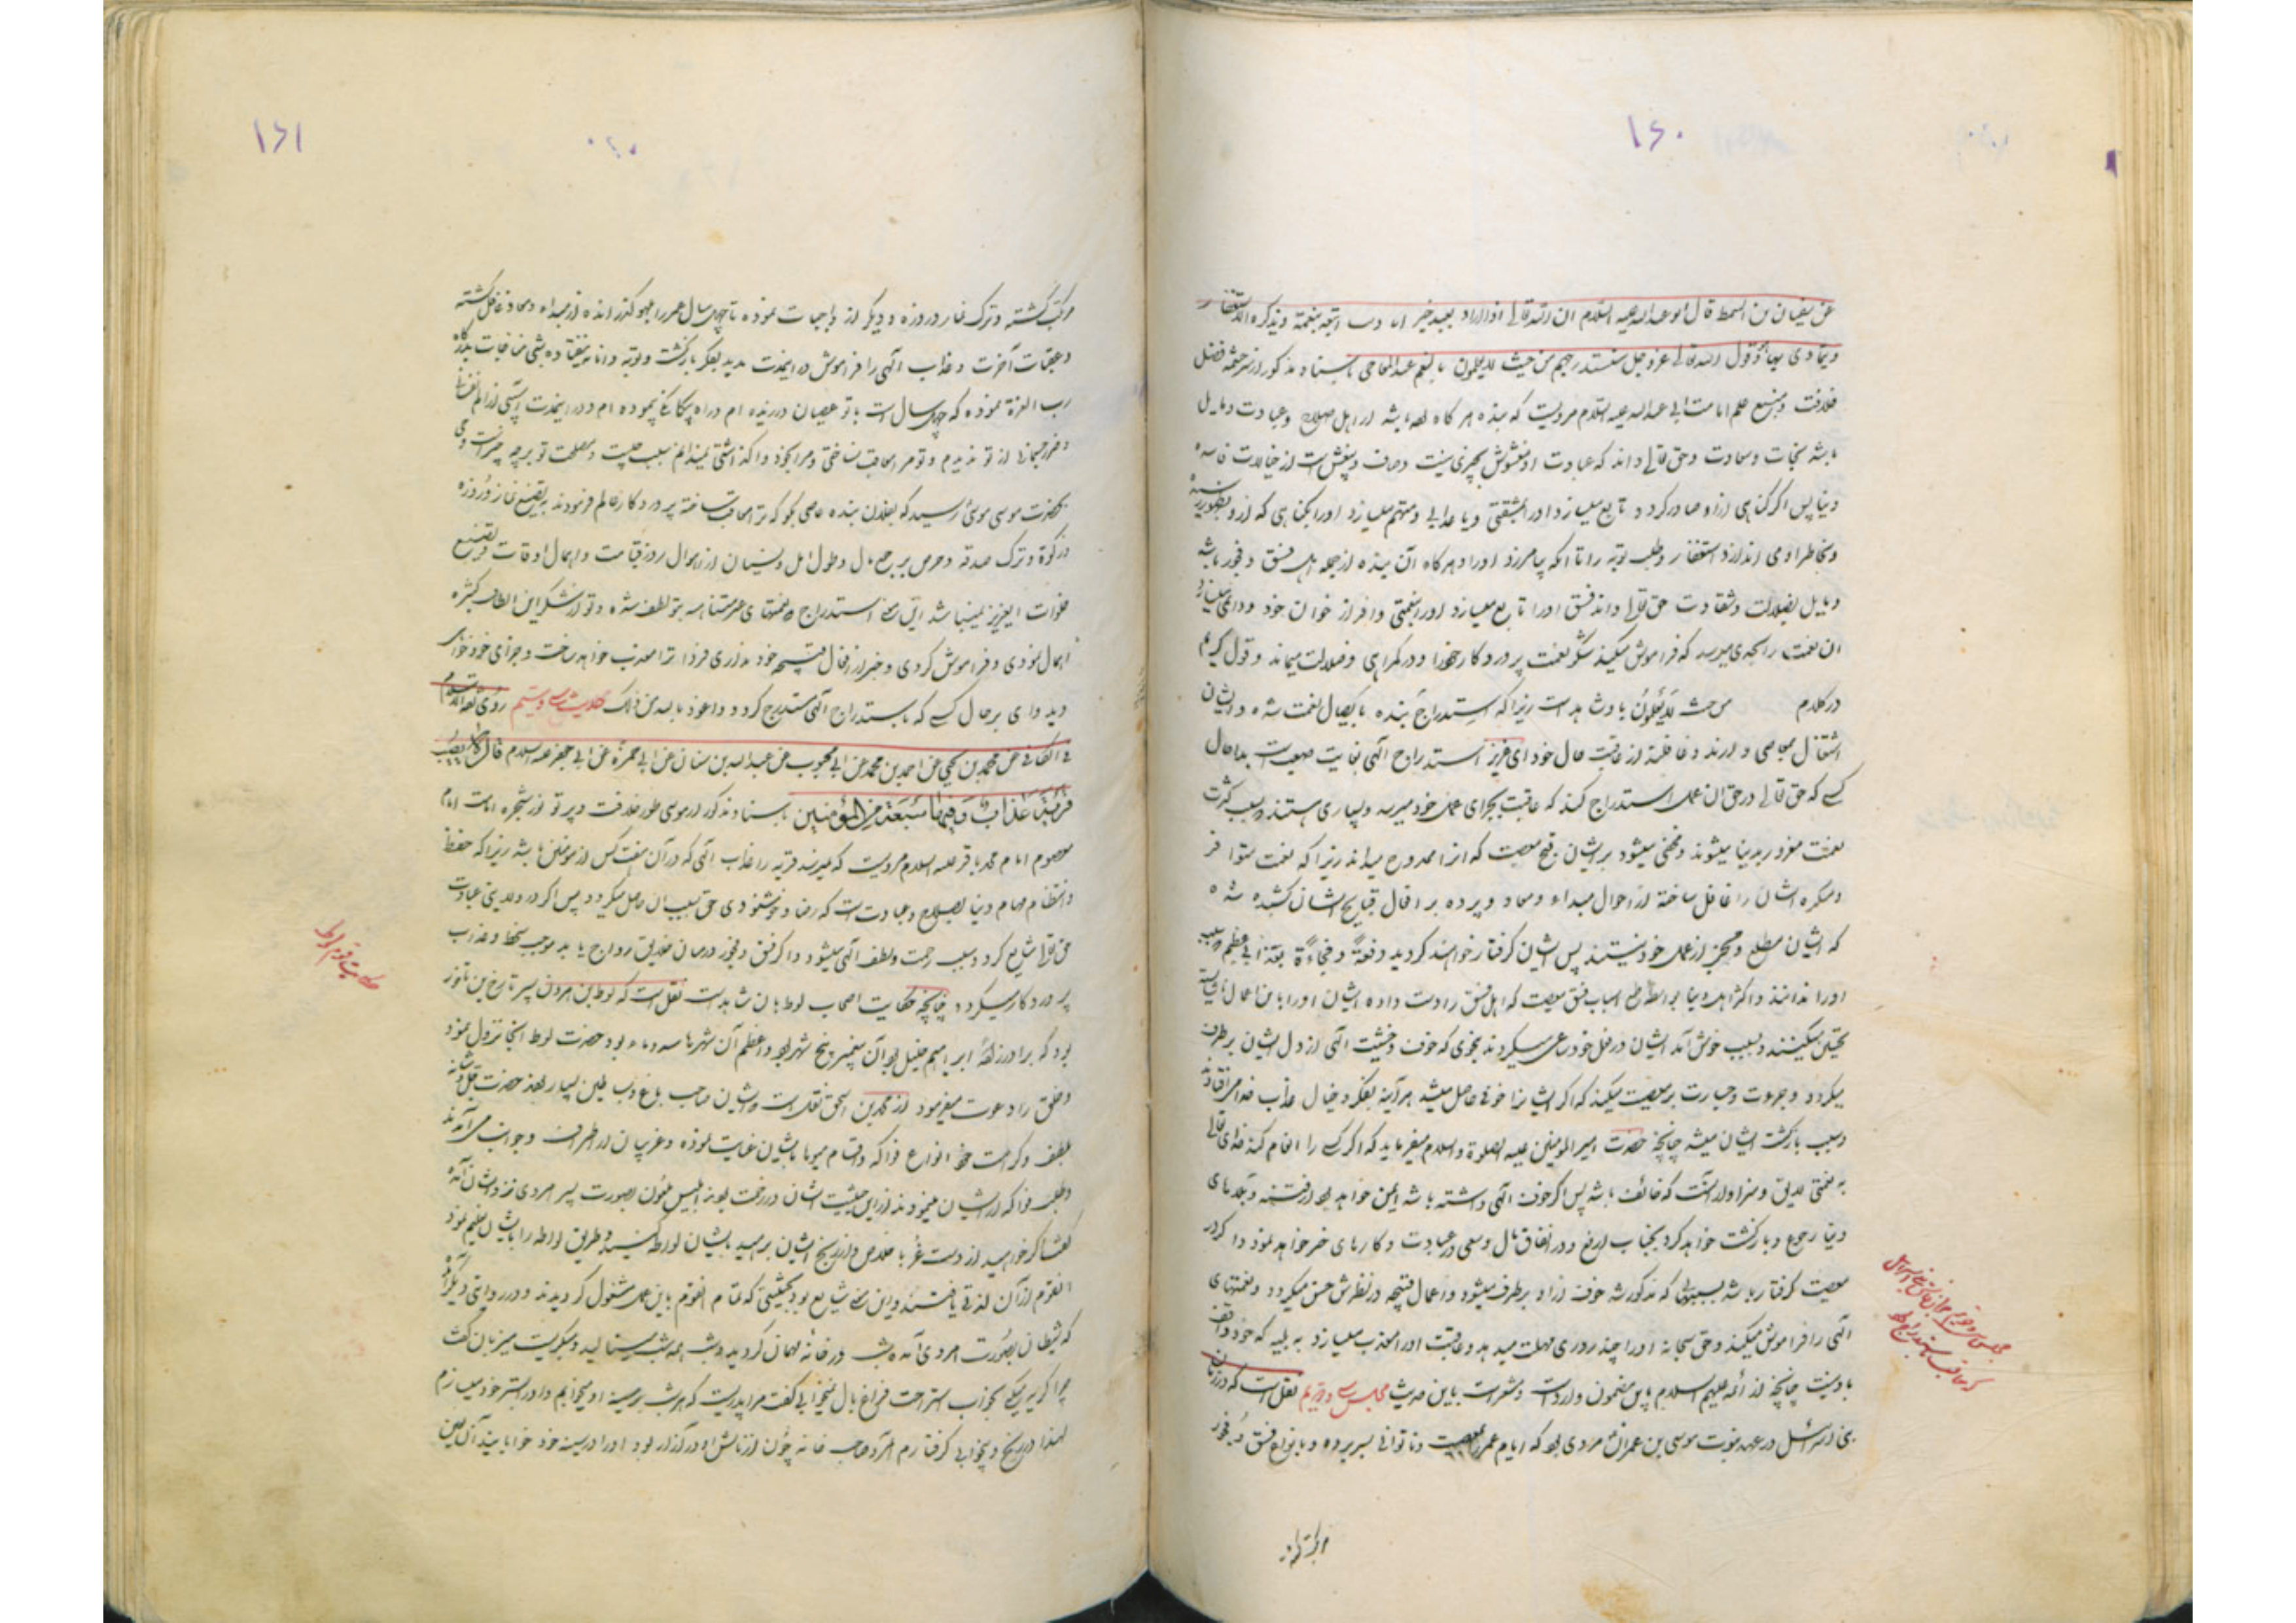 ۱۶۰
عن سفیان بن السمط قال ابو عبد الله علیه السلام ان الله تعالی اذا اراد بعبد خیر اتبعه بنقمة ویذکره الاستغفار
ویتمادی بها وقول الله تعالی عز وجل سنستدرجهم من حیث لا یعلمون بالنعم عند المعاصی باسناد مذکور از سرچشمه فضل
خلافت ومنبع علم امامت ابی عبد الله علیه السلام مرویست که بنده هر گاه بوده باشد از اهل صلاح وعبادت ومایل
باشد بنجات وسعادت وحق تعالی داند که عبادت او مغشوش بچیزی نیست وصاف وبیغش است از خیالات فاسده
دنیا پس اگر گناهی از او صادر گردد تابع میسازد او را بمشقتی ویا عذابی ومتهم میسازد او را بگناهی که از او بظهور رسیده
وبخاطر او می اندازد استغفار وطلب توبه را تا آنکه بیامرزد او را وهر گاه آن بنده از جمله اهل فسق وفجور باشد
ومایل بضلالت وشقاوت حق تعالی داند فسق او را تابع میسازد او را بنعمتی وافر از خوان خود
ان نعمت را بحدی میرسد که فراموش میکند شکر نعمت پروردگار خود را ودر گمراهی وضلالت میماند وقول کریم
در کلام من حیث لا یعلمون باوشاهد است زیرا که استدراج بنده بایصال نعمت شده وایشان
اشتغال بمعاصی دارند وغافلند از عاقبت حال خود ای عزیز استدراج الهی بغایت صعبست بدا حال
کسی که حق تعالی در حق ان عمل استدراج کند که عاقبت بجزای عمل خود میرسد وبسیاری هستند بسبب کثرت
نعمت مغرور بدنیا میشوند ومخفی میشود بر ایشان قبح معصیت که انرا ممدوح میداند زیرا که نعمت متوافر
ومکرر ایشان را غافل ساخته از احوال مبداء ومعاد وپرده بر افعال قبایح ایشان کشیده شده
که ایشان مطلع ومخبر از عمل خود نیستند پس ایشان گرفتار خواهند گردید دفعةً وفجاءةً بعذابی عظیم وسبب
اورا ندانند واکثر اهل دنیا بواسطه جمع اسباب فسق ومعصیت که اهل فسق را دست داده ایشان اورا باین اعمال
تحیتی میکنند وبسبب خوش آمد ایشان در فعل خود ساعی میگردند بنحوی که خوف وخشیت الهی از دل ایشان برطرف
میگردد وجرءت وجسارت بر معصیت میکند که اگر ایشانرا خوفی حاصل میشد هر آینه بفکر وخیال عذاب خدا می افتادند
وسبب بازگشت ایشان میشد چنانچه حضرت امیر المؤمنین علیه الصلوة والسلام میفرماید که اگر کسی را انعام کند خدای تعالی
به نعمتی لایق وسزاوار آنست که خائف باشد پس اگر خوف الهی داشته باشد ایمن خواهد بود از فتنه وبلاهای
دنیا رجوع وبازگشت خواهد کرد بجناب ارفع ودر انفاق مال وسعی در عبادت وکارهای خیر خواهد نمود واگر در
معصیت گرفتار باشد بسببی که مذکور شد خوف از او برطرف میشود واعمال قبیحه در نظرش حسن میگردد ونعمتهای
الهی را فراموش میکند وحق سبحانه اورا چند روزی مهلت میدهد وعاقبت اورا معذب میسازد به بلیه که خود واقف
باو نیست چنانچه از ائمه علیهم السلام باین مضمون وارد است ومشعر است باین حدیث مجلس سی ودویم نقل است که در زمان
بنی اسرائیل در عهد نبوت موسی بن عمران مردی بود که ایام عمر بمعصیت وناتوانی بسر برده وبانواع فسق وفجور
مرتکب
۱۶۱
مرتکب گشته وترک نماز وروزه ودیگر از واجبات نموده تا چهل سال عمر را بلهو گذرانده از مبداء ومعاد غافل گشته
وعقبات آخرت وعذاب الهی را فراموش در اینمدت مدید بفکر بازگشت وتوبه وانابه نیفتاده شبی مناجات بدرگاه
رب العزة نموده که چهل سال است با تو عصیان ورزیده ام وراه بیگانگی پیموده ام ودر اینمدت
از تو ندیدم وتو مرا معاقب نساختی ومرا بخود واگذاشتی نمیدانم سبب چیست ومصلحت تو بر چه چیز است وحی
بحضرت موسی رسید که بفلان بنده عاصی بگو که ترا معاقب ساخته پروردگار عالم فرمودند به تضییع نماز وروزه
وزکوة وترک صدقه وحرص بر جمع مال وطول امل ونسیان از احوال روز قیامت واهمال اوقات در تضییع
صلوات ایعزیز نمیباشد این معنی استدراج ونعمتهای غیر متناهیه بتو لطف شده وتو از شکر این الطاف کثیره
اهمال نمودی وفراموش کردی وخبر از افعال قبیحه خود نداری فردا ترا معذب خواهد ساخت وجزای خود خواهی
دید وای بر حال کسی که باستدراج الهی مستدرج گردد واعوذ بالله من ذلک حدیث سی وسیم روی ثقة الاسلام
فی الکافی عن محمد بن یحیی عن احمد بن محمد عن ابن محبوب عن عبد الله بن سنان عن ابی حمزة عن ابی جعفر علیه السلام قال لا یصیب
قریة عذاب وفیها سبعة من المؤمنین باسناد مذکور از موسی طور خلافت وپرتو نور شجره امامت امام
معصوم امام محمد باقر علیه السلام مرویست که نمیرسد قریه را عذاب الهی که در آن هفت کس از مؤمنین باشد زیرا که حفظ
وانتظام مهام دنیا بصلاح وعبادت است که رضا وخوشنودی حق بسبب آن حاصل میگردد پس اگر در ولایتی عبادت
حق تعالی شایع گردد سبب رحمت ولطف الهی میشود واگر فسق وفجور در میان خلایق رواج یابد موجب سخط وعذاب
پروردگار میگردد چنانچه حکایت اصحاب لوط بآن شاهد است نقل است که لوط بن هرون پسر تارخ بن ناحور
بود که برادرزاده ابراهیم خلیل بود آن پیغمبر پنج شهر بود واعظم آن شهرها سدوم بود حضرت لوط آنجا نزول نمود
وخلق را دعوت میفرمود از محمد بن اسحق نقلست وایشان صاحب باغ وبساطین بسیار بودند حضرت جل شانه
بلطف وکرامت خود انواع فواکه واقسام میوها بایشان عنایت نموده وغریبان از اطراف وجوانب می آمدند
وطلب فواکه از ایشان مینمودند از این حیثیت ایشان در زحمت بودند ابلیس ملعون بصورت پسر امردی نزد ایشان آمده
گفت اگر خواهید از دست غربا خلاص واز رنج ایشان برهید بایشان لواطه کنید وطریق لواطه را بایشان تعلیم نمود
القوم از آن لذتی یافتند واین معنی شایع بود بحیثیتی که تمام القوم باین عمل مشغول گردیدند ودر روایتی دیگر آمده
که شیطان بصورت امردی آمده شب در خانه مهمان گردید وشب همه شب مینالید ومیگریست میزبان گفت
چرا گریه میکنی بخواب استراحت فراغ بال نمیخوابی گفت مرا پدریست که هر شب بر سینه او میخوابم واو در بستر خود میسازم
لهذا در رنج وبیخوابی گرفتارم آن صاحب خانه چون از نالش او در آزار بود اورا در سینه خود خوابانید آن لعین
حکایت قوم لوط